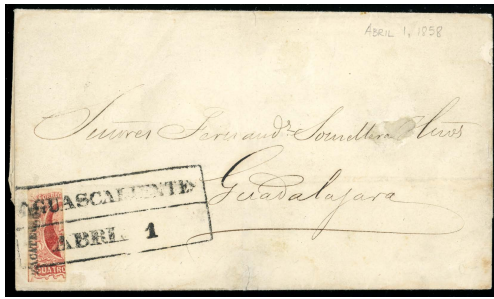 ABRIL 1, 1858
Señores Fernandz. Somellera Hnos
Guadalajara
AGUASCALIENTES
ABRIL 1
CUATRO